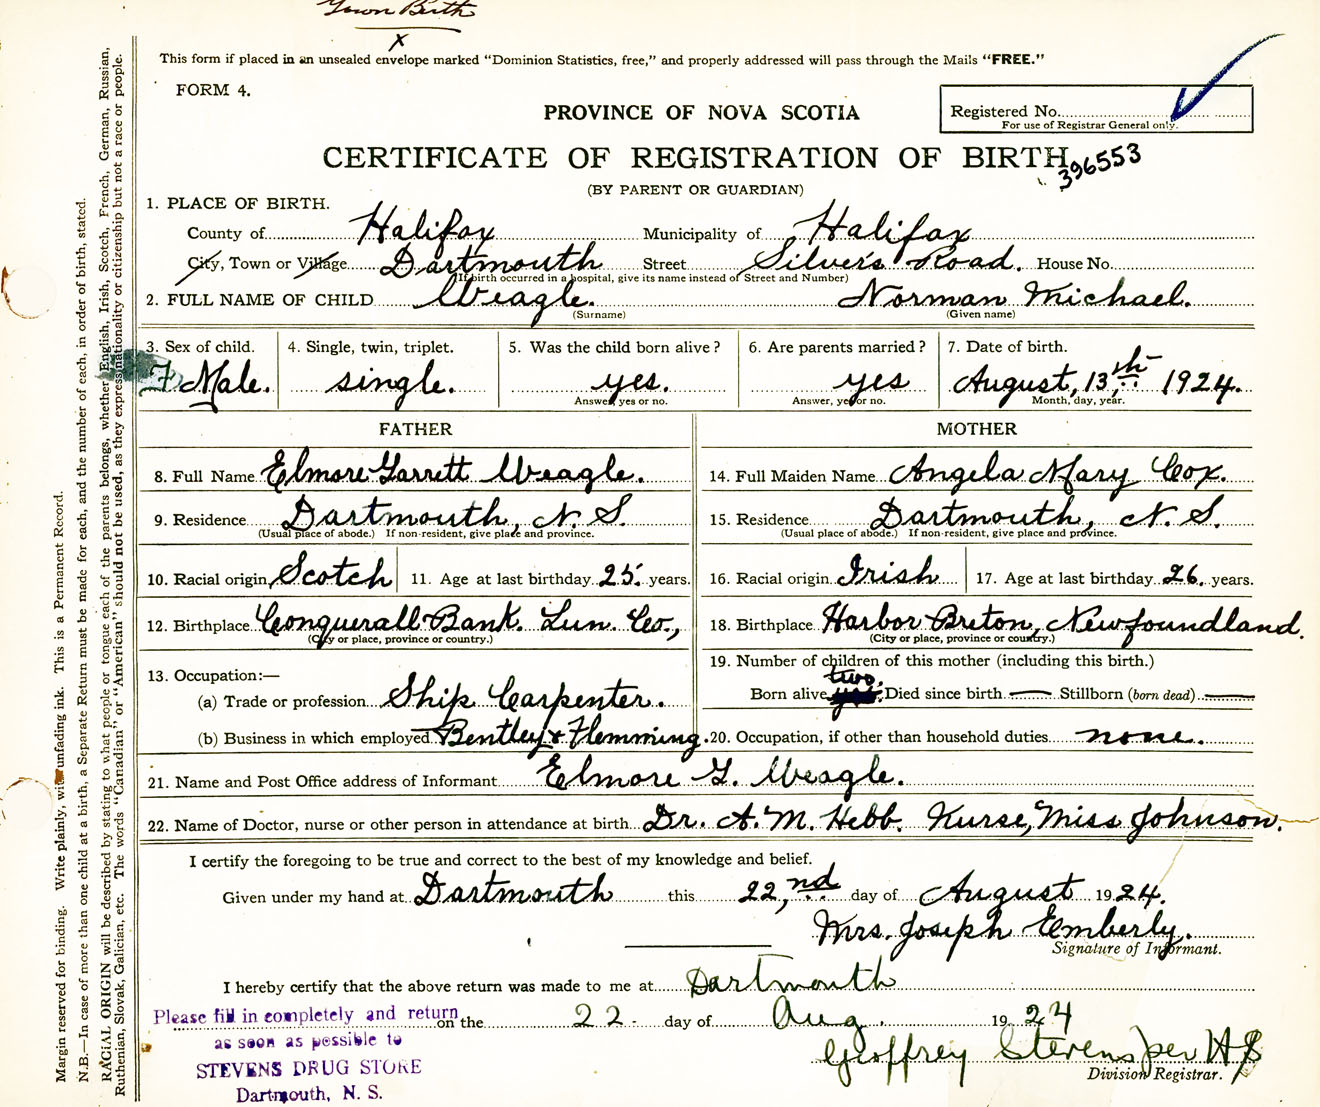 Town Birth
X
This form if placed in an unsealed envelope marked "Dominion Statistics, free," and properly addressed will pass through the Mails "FREE."
FORM 4.
PROVINCE OF NOVA SCOTIA
Registered No.
For use of Registrar General only.
CERTIFICATE OF REGISTRATION OF BIRTH
396553
(BY PARENT OR GUARDIAN)
1. PLACE OF BIRTH.
County of Halifax Municipality of Halifax
City, Town or Village Dartmouth Street Silvers Road. House No.
(If birth occurred in a hospital, give its name instead of Street and Number)
2. FULL NAME OF CHILD Weagle. Norman Michael.
(Surname) (Given name)
3. Sex of child. 4. Single, twin, triplet. 5. Was the child born alive? 6. Are parents married? 7. Date of birth.
Male. single. yes. yes August, 13th 1924.
Answer, yes or no. Answer, yes or no. Month, day, year.
FATHER MOTHER
8. Full Name Elmore Garrett Weagle. 14. Full Maiden Name Angela Mary Cox.
9. Residence Dartmouth, N. S. 15. Residence Dartmouth, N. S.
(Usual place of abode.) If non-resident, give place and province. (Usual place of abode.) If non-resident, give place and province.
10. Racial origin Scotch 11. Age at last birthday 25. years. 16. Racial origin Irish 17. Age at last birthday 26. years.
12. Birthplace Conquerall Bank. Lun. Co., 18. Birthplace Harbor Breton, Newfoundland.
(City or place, province or country.) (City or place, province or country.)
13. Occupation:— 19. Number of children of this mother (including this birth.)
two.
(a) Trade or profession Ship Carpenter. Born alive Died since birth — Stillborn (born dead) —
(b) Business in which employed Bentley & Flemming. 20. Occupation, if other than household duties none.
21. Name and Post Office address of Informant Elmore G. Weagle.
22. Name of Doctor, nurse or other person in attendance at birth Dr. A. M. Hebb. Nurse, Miss Johnson.
I certify the foregoing to be true and correct to the best of my knowledge and belief.
Given under my hand at Dartmouth this 22,nd day of August 1924.
Mrs. Joseph Emberly.
Signature of Informant.
I hereby certify that the above return was made to me at Dartmouth
on the 22. day of Aug. 1924
Geoffrey Stevens per H S
Division Registrar.
Please fill in completely and return
as soon as possible to
STEVENS DRUG STORE
Dartmouth, N. S.
Margin reserved for binding. Write plainly, with unfading ink. This is a Permanent Record.
N.B.—In case of more than one child at a birth, a Separate Return must be made for each, and the number of each, in order of birth, stated.
RACIAL ORIGIN will be described by stating to what people or tongue each of the parents belongs, whether English, Irish, Scotch, French, German, Russian,
Ruthenian, Slovak, Galician, etc. The words "Canadian" or "American" should not be used, as they express nationality or citizenship but not a race or people.